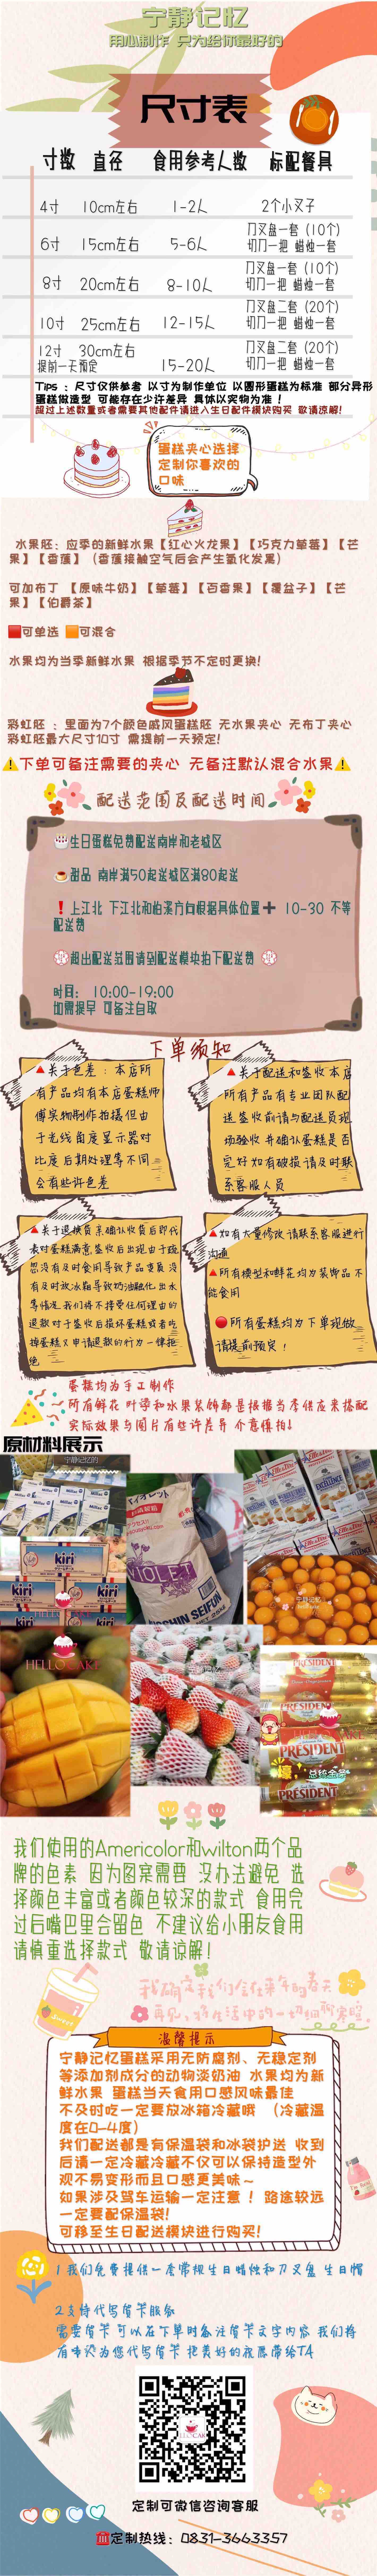 宁静记忆
用心制作 只为给你最好的
尺寸表
寸数 直径 食用参考人数 标配餐具
4寸 10cm左右 1-2人 2个小叉子
6寸 15cm左右 5-6人 刀叉盘一套（10个）
切刀一把 蜡烛一套
8寸 20cm左右 8-10人 刀叉盘一套（10个）
切刀一把 蜡烛一套
10寸 25cm左右 12-15人 刀叉盘二套（20个）
切刀一把 蜡烛一套
12寸 30cm左右 15-20人 刀叉盘二套（20个）
提前一天预定 切刀一把 蜡烛一套
Tips ：尺寸仅供参考 以寸为制作单位 以圆形蛋糕为标准 部分异形
蛋糕做造型 可能存在少许差异 具体以实物为准！
超过上述数量或者需要其他配件请进入生日配件模块购买 敬请谅解!
蛋糕夹心选择
定制你喜欢的
口味
水果胚：应季的新鲜水果【红心火龙果】【巧克力草莓】【芒
果】【香蕉】（香蕉接触空气后会产生氧化发黑）
可加布丁 【原味牛奶】【草莓】【百香果】【覆盆子】【芒
果】【伯爵茶】
可单选 可混合
水果均为当季新鲜水果 根据季节不定时更换!
彩虹胚 ：里面为7个颜色戚风蛋糕胚 无水果夹心 无布丁夹心
彩虹胚最大尺寸10寸 需提前一天预定!
下单可备注需要的夹心 无备注默认混合水果
配送范围及配送时间
生日蛋糕免费配送南岸和老城区
甜品 南岸满50起送城区满80起送
上江北 下江北和柏溪方向根据具体位置➕ 10-30 不等
配送费
超出配送范围请到配送模块拍下配送费
时间： 10:00-19:00
如需提早 可备注自取
下单须知
关于色差 ：本店所
有产品均有本店蛋糕师
傅实物制作拍摄但由
于光线角度显示器对
比度后期处理等不同
会有些许色差
关于配送和签收本店
所有产品有专业团队配
送签收前请与配送员现
场验收并确认蛋糕是否
完好如有破损请及时联
系客服人员
关于退换货亲确认收货后即代
表对蛋糕满意签收后出现由于疏
忽没有及时食用导致产品变质没
有及时放冰箱导致奶油融化出水
等情况我们将不接受任何理由的
退款对于签收后损坏蛋糕或者吃
掉蛋糕又申请退款的行为一律拒
绝
如有大量修改请联系客服进行
沟通
所有模型和鲜花均为装饰品不
能食用
所有蛋糕均为下单现做
请提前预定！
蛋糕均为手工制作
所有鲜花 叶子和水果装饰都是根据当季供应来搭配
实际效果与图片有些许差异 介意慎拍!
原材料展示
宁静记忆的
Milluc
kiri
kiri
kiri
HELLO CAKE
バイオレット
VIOLET
NISSHIN SEIFUN
宁静记忆
HELLO CAKE
PRESIDENT
PRESIDENT
PRESIDENT
PRESIDENT
壕,
总统金条
我们使用的Americolor和wilton两个品
牌的色素 因为图案需要 没办法避免 选
择颜色丰富或者颜色较深的款式 食用完
过后嘴巴里会留色 不建议给小朋友食用
请慎重选择款式 敬请谅解!
Sweet
我确定我们会在来年的春天
再见
温馨提示
宁静记忆蛋糕采用无防腐剂、无稳定剂
等添加剂成分的动物淡奶油 水果均为新
鲜水果 蛋糕当天食用口感风味最佳
不及时吃一定要放冰箱冷藏哦 （冷藏温
度在0-4度）
我们配送都是有保温袋和冰袋护送 收到
后请一定冷藏冷藏不仅可以保持造型外
观不易变形而且口感更美味～
如果涉及驾车运输一定注意 ！路途较远
一定要配保温袋!
可移至生日配送模块进行购买!
1 我们免费提供一套常规生日蜡烛和刀叉盘 生日帽
2支持代写贺卡服务
需要贺卡可以在下单时备注贺卡文字内容 我们将
为您代写贺卡 把美好的祝愿带给TA
定制可微信咨询客服
定制热线：0831-3663357